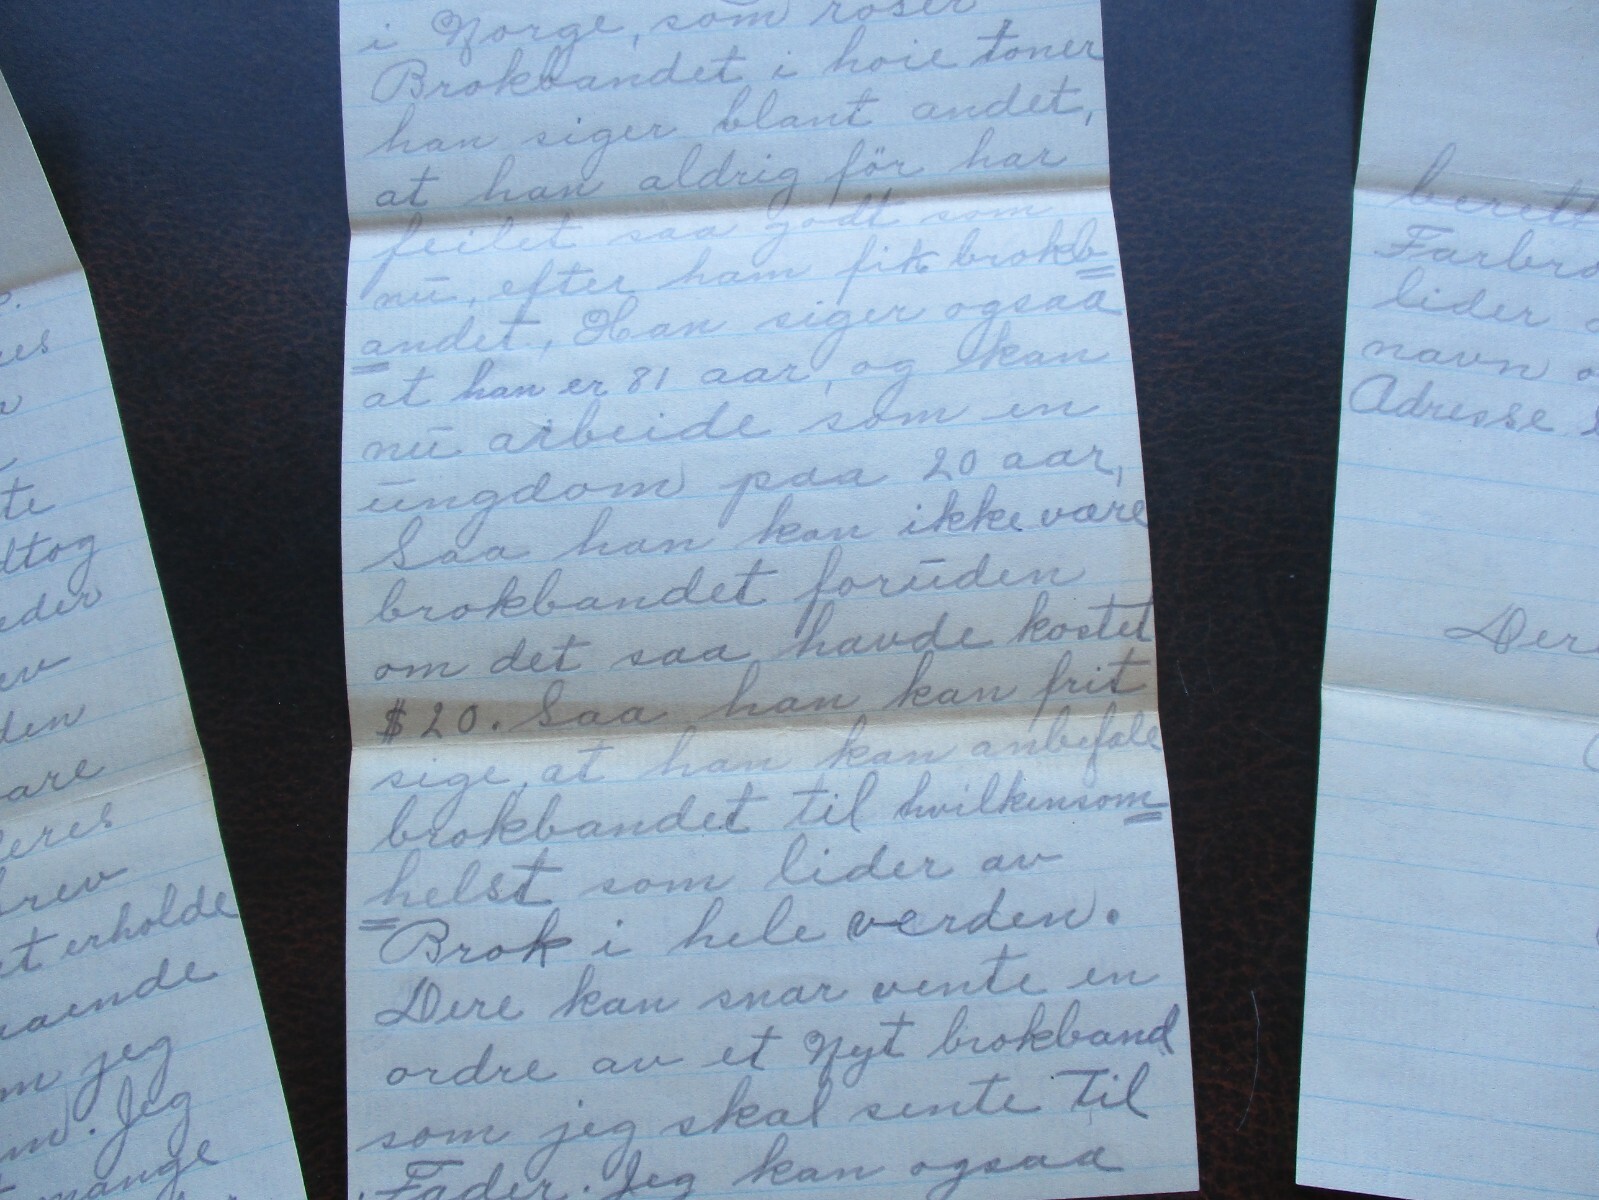 es
te
dtog
eder
ev
den
are
Deres
brev
at erholde
jeg
Jeg
mange
i Norge, som roser
Brokbandet i hoie toner
han siger blant andet,
at han aldrig för har
feilet saa godt som
nū, efter ham fik brokb=
andet, Han siger ogsaa
at han er 81 aar, og kan
nū arbeide som en
ūngdom paa 20 aar,
Saa han kan ikke være
brokbandet forūden
om det saa havde kostet
$20. Saa han kan frit
sige, at han kan anbefale
brokbandet til hvilkensom=
helst som lider av
Brok i hele verden.
Dere kan snar vente en
ordre av et Nyt brokband
som jeg skal sente til
Fader. Jeg kan ogsaa
berett
Farbro
lider
navn o
Adresse
Der